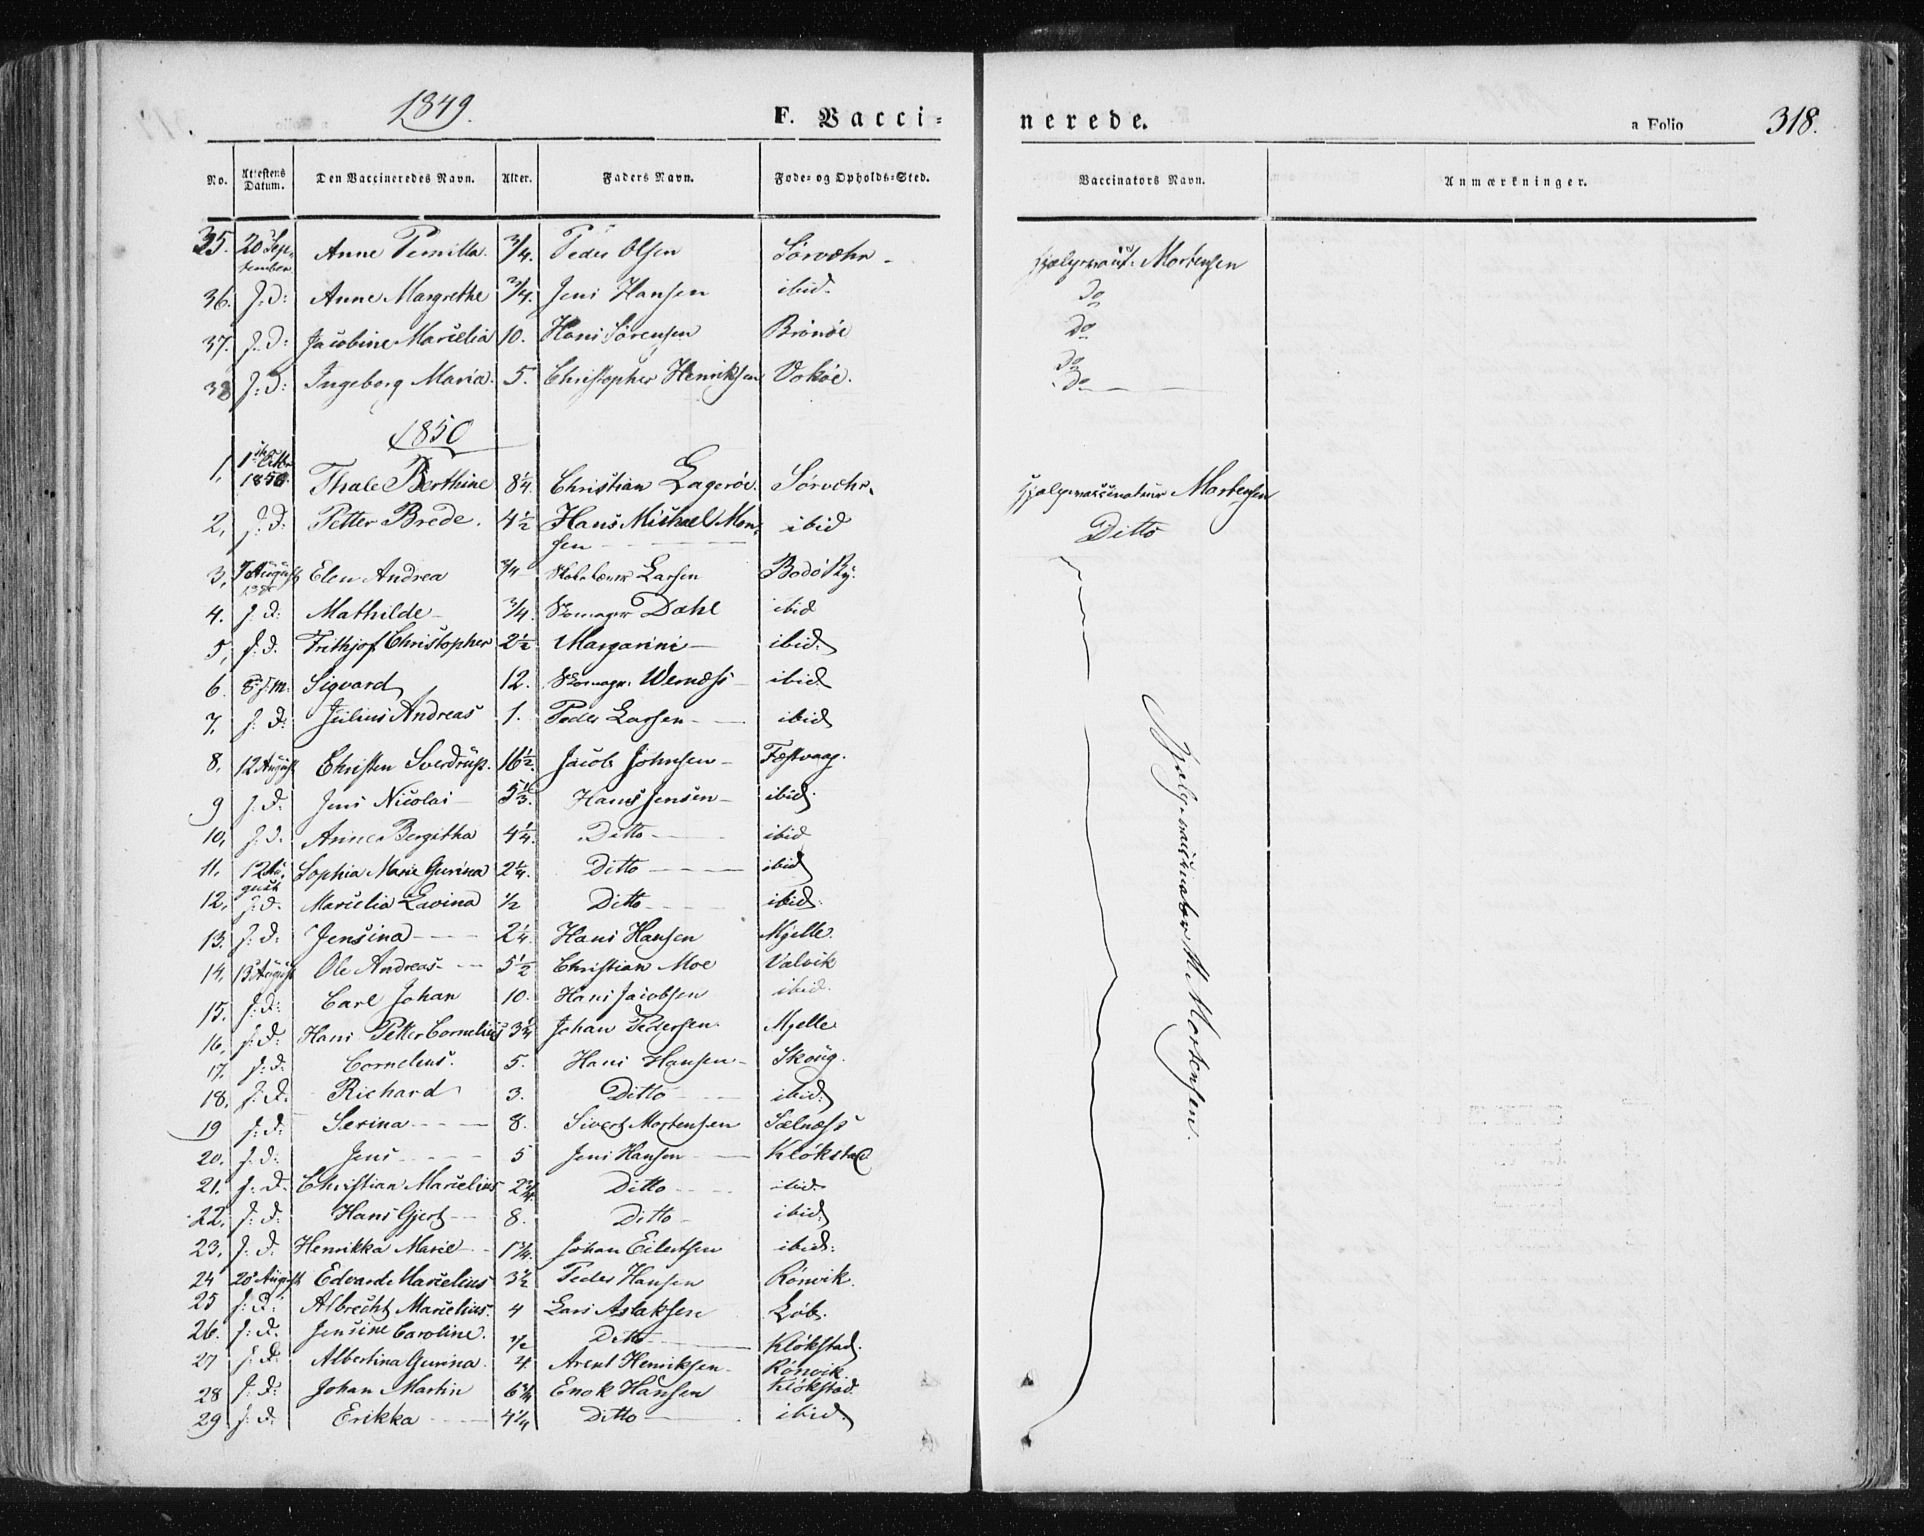 1849.
F. Vaccinerede.
a Folio 318.
No. Attestens Datum. Den Vaccineredes Navn. Alter. Faders Navn. Føde- og Opholds-Sted. Vaccinators Navn. Anmærkninger.
35. 20 September Anne Pernilla. 3/4. Peder Olsen Mortensen
36. J: d: Anne Margrethe 3/4. Jens Hansen ibid. Do
37. J: d: Jacobine Marcelia 10. Hans Sørensen Brønøe Do
38 J: d: Ingeborg Maria. 5. Christopher Henriksen Do Do
1850
1, 1850. Thale Berthine 8 1/4. Christian Lagerøe. Hjælpevaccinateur Mortensen
2, J: d: Petter Brede. 4 1/2 Hans Michael Monsen ibid Ditto
3, 7 August Elen Andrea 3/4 Larsen Bodø By.
4. J: d: Mathilde 3/4. Skomager Dahl ibid
5, J. d. Frithjof Christopher 2 1/2 Margarini ibid.
6. Sigvard 12. Skomagr. Wernæss ibid
7. J: d: Julius Andreas 1. Peder Larsen ibid
8, 12 August Christen Sverdrup. 16 1/2. Jacob Johnsen Fæstvaag.
9 J: d: Jens Nicolai 5 1/3. Hans Jensen ibid.
10, J: d. Anne Bergitha 4 1/4. Ditto ibid
11. 12 August Sophia Marie Gurina 2 1/4. Ditto ibid
12, J: d. Marcelia Lavina 1/2 Ditto ibid.
13. J: d: Jensina 2 1/4. Hans Hansen Mjelle.
14, 13 August Ole Andreas 5 1/2 Christian Moe Valvik
15. J: d: Carl Johan 10. Hans Jacobsen ibid.
16, J: d: Hans Petter Cornelius 3 1/4 Johan Pedersen. Mjelle
17. J: d: Cornelius. 5. Hans Hansen Skoug.
18. J: d. Richard 3. Ditto ibid.
19 J: d: Serina 8. Sivert Mortensen Sælnæss
20. J: d: Jens 5 Jens Hansen Kløkstad
21. J: d. Christian Marcelius 2 3/4. Ditto ibid.
22. J: d: Hans Gjert 8. Ditto ibid.
23. J: d. Henrikka Marie 1 3/4. Johan Eilertsen ibid:
24 20 August Edvard Marcelius 3 1/2 Peder Hansen Rønvik.
25 J: d: Albrecht Marcelius. 4 Lars Aslaksen Løb.
26. J: d. Jensine Caroline. 1/2 Ditto Kløkstad.
27 J: d: Albertina Gurina. 4. Arent Henriksen Rønvik
28 J: d: Johan Martin 6 3/4 Enok Hansen Kløkstad.
29 J: d: Erikka 4 1/4 Ditto ibid.
Hjælpevaccinatør M. Mortensen.